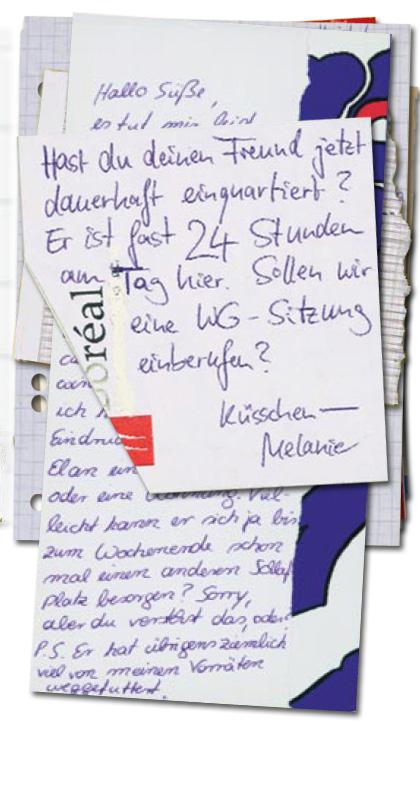 Hallo Süße,
es tut mir leid
Hast du deinen Freund jetzt
dauerhaft einquartiert?
Er ist fast 24 Stunden
am Tag hier. Sollen wir
eine WG-Sitzung
einberufen?
Küsschen—
Melanie
oréal
ich
Eindruck
Elan
oder eine Wohnung. Viel-
leicht kann er sich ja bis
zum Wochenende schon
mal einen anderen Schlaf
platz besorgen? Sorry,
aber du verstehst das, oder.
P.S. Er hat übrigens ziemlich
viel von meinen Vorräten
weggefuttert.